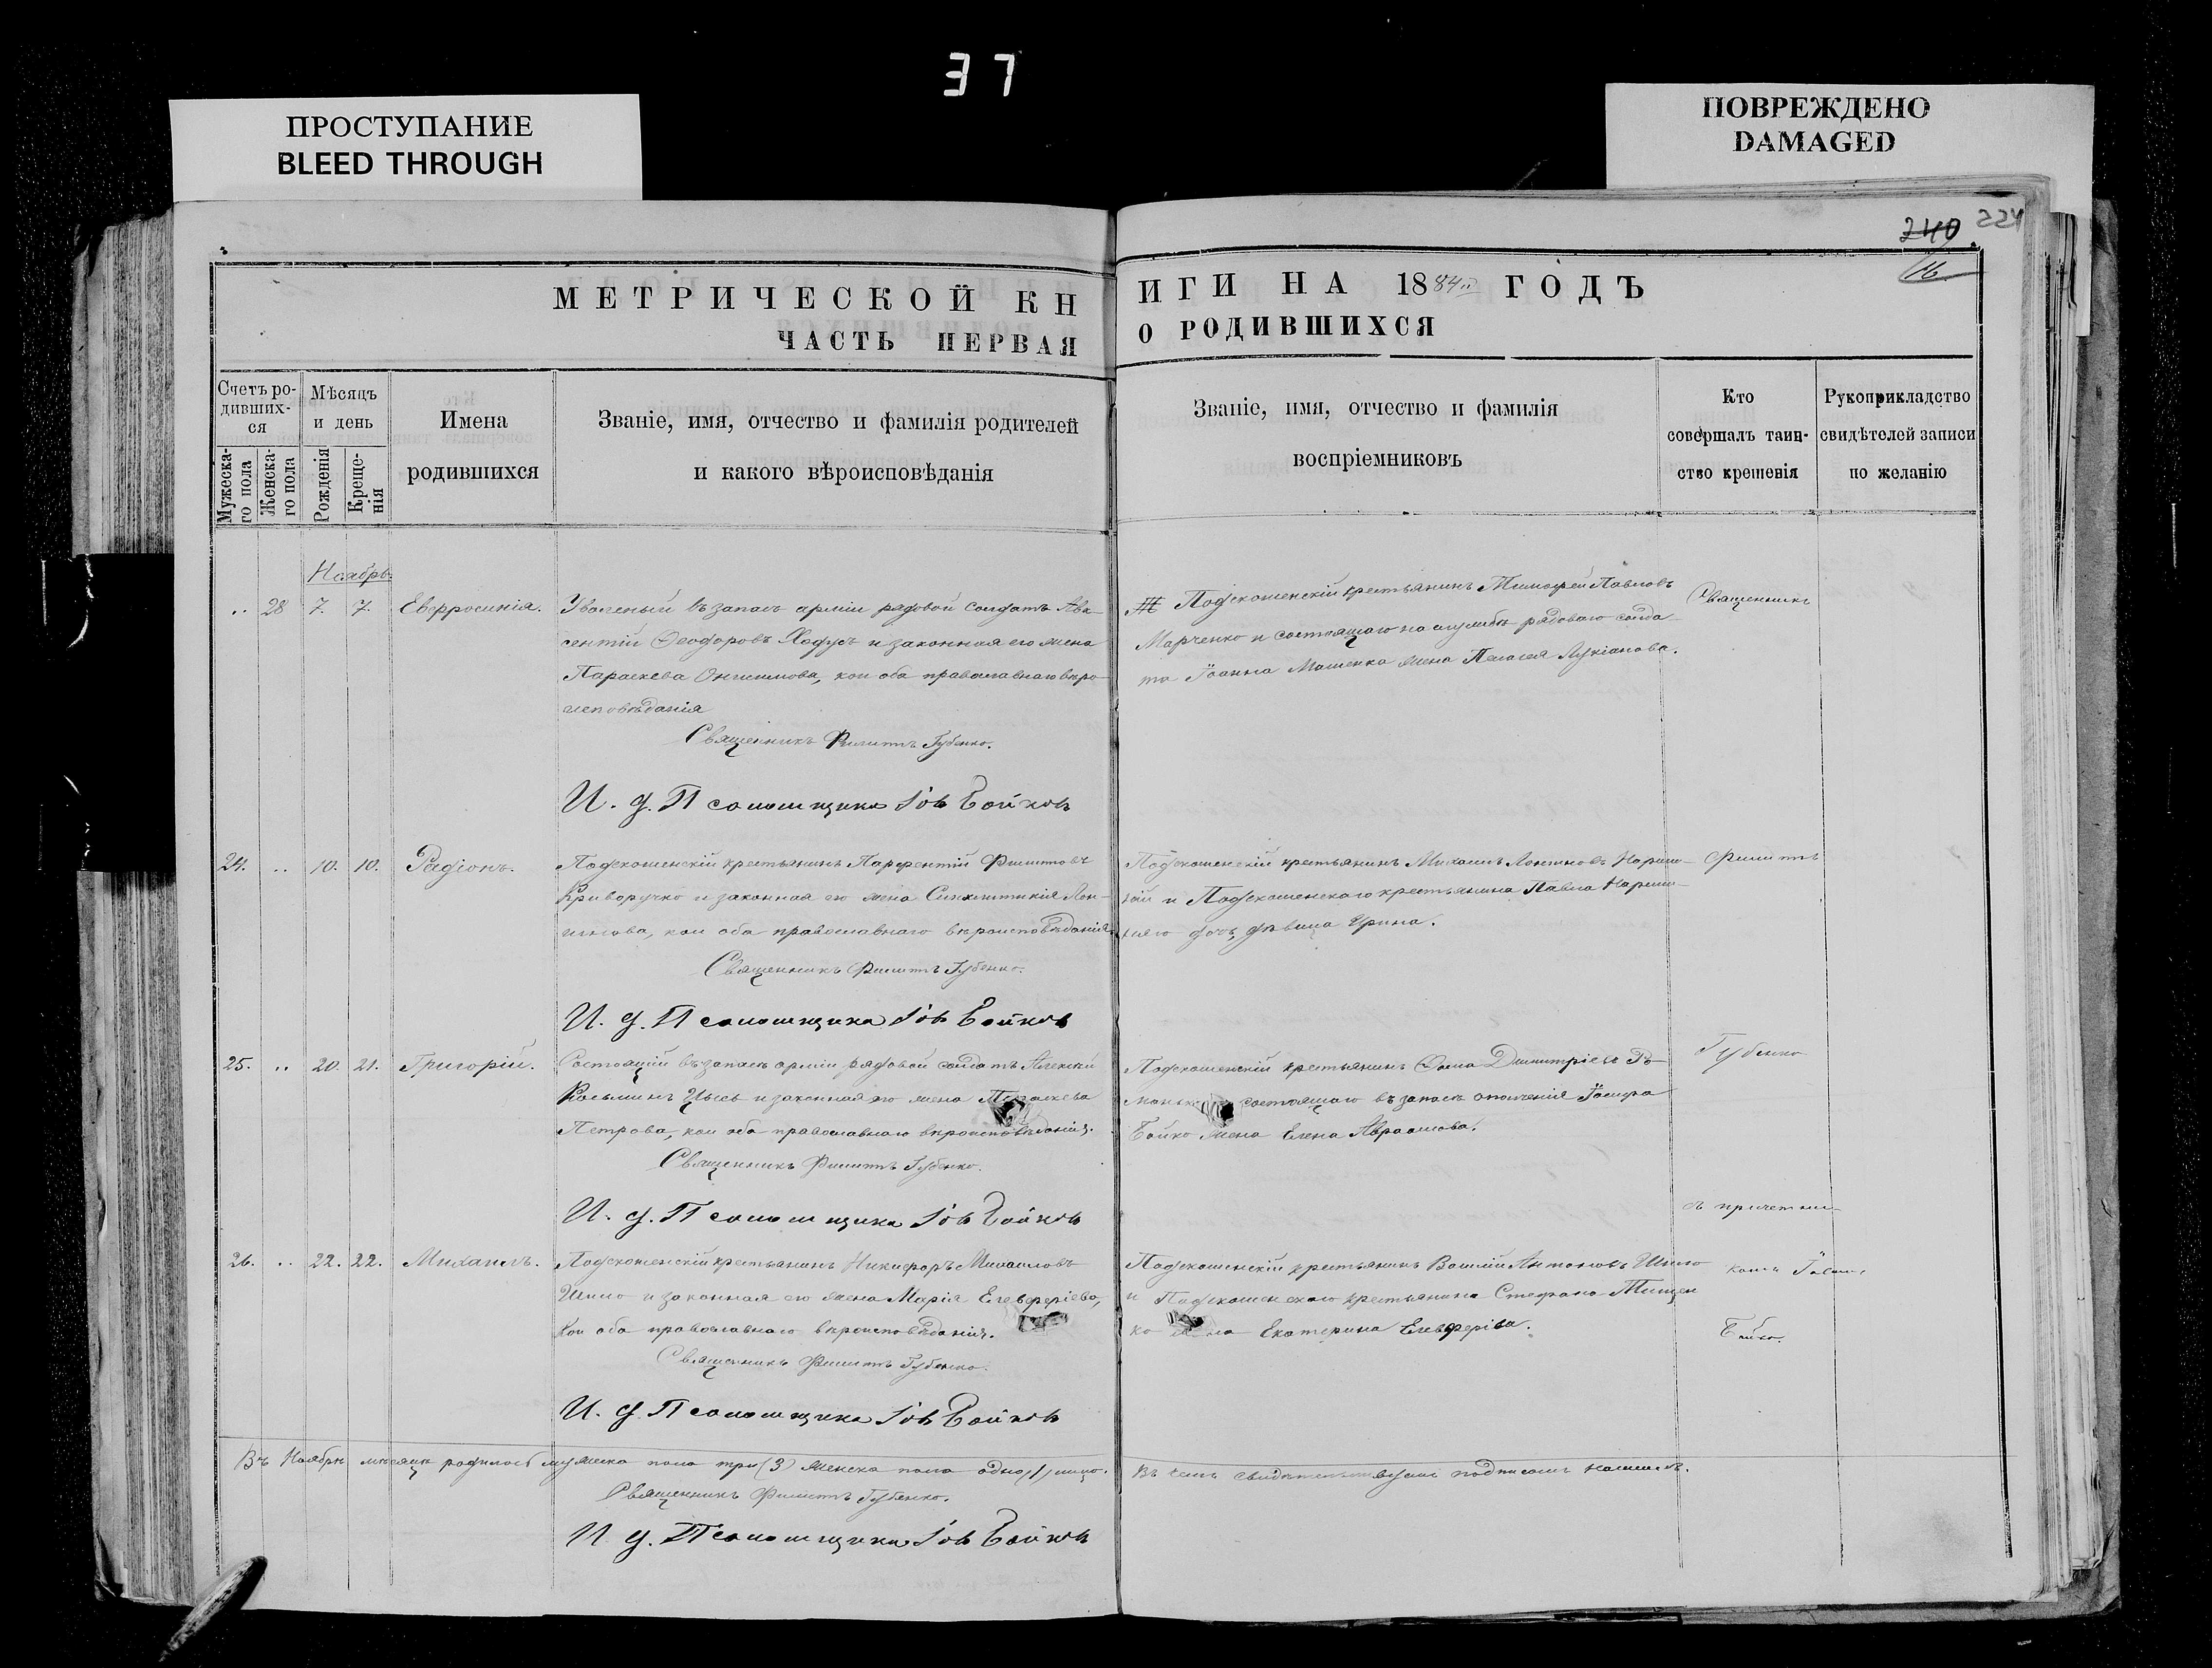 37
ПРОСТУПАНИЕ
BLEED THROUGH
ПОВРЕЖДЕНО
DAMAGED
240 224
16
МЕТРИЧЕСКОЙ КН
ЧАСТЬ ПЕРВАЯ
ИГИ НА 1884 ГОДЪ
О РОДИВШИХСЯ
Счетъ ро-
дивших-
ся
Мужеска-
го пола
Женска-
го пола
Мѣсяцъ
и день
Рожденія
Креще-
нія
Имена
родившихся
Званіе, имя, отчество и фамилія родителей
и какого вѣроисповѣданія
Званіе, имя, отчество и фамилія
воспріемниковъ
Кто
совершалъ таин-
ство крешенія
Рукоприкладство
свидѣтелей записи
по желанію
Ноябрь.
.. 28 7. 7. Евфросинія.
Уволеный въ запасъ арміи рядовой солдатъ Авк-
сентій Ѳеодоровъ Ходусъ и законная его жена
Параскева Онисимова, кои оба православнаго вѣро-
исповѣданія
Священникъ Филиппъ Губенко.
И. д. Псаломщика Іовъ Бойковъ
Подскошенскій крестьянинъ Тимофей Павловъ
Марченко и состоящаго на службѣ рядоваго солда-
та Іоанна Мошенка жена Пелагея Лукіанова.
Священникъ
24. .. 10. 10. Радіонъ.
Подскошенскій крестьянинъ Парфентій Филипповъ
Криворучко и законная его жена Синклитикія Лон-
гинова, кои оба православнаго вѣроисповѣданія.
Священникъ Филиппъ Губенко.
И. д. Псаломщика Іовъ Бойковъ
Подскошенскій крестьянинъ Михаилъ Лонгиновъ
и Подскошенскаго крестьянина Павла
дочь, дѣвица Ирина.
Филиппъ
25. .. 20. 21. Григорій.
Состоящій въ запасѣ арміи рядовой солдатъ Алексѣй
Косьминъ Цысь и законная его жена Параскева
Петрова, кои оба православнаго вѣроисповѣданія.
Священникъ Филиппъ Губенко.
И. д. Псаломщика Іовъ Бойковъ
Подскошенскій крестьянинъ Ѳома Димитріевъ Ро-
состоящаго въ запасѣ ополченія Іосифа
Бойко жена Елена Авраамова.
Губенко
съ причетни-
26. .. 22. 22. Михаилъ.
Подскошенскій крестьянинъ Никифоръ Михаиловъ
Шило и законная его жена Марія Елевферіева,
кои оба православнаго вѣроисповѣданія.
Священникъ Филиппъ Губенко.
И. д. Псаломщика Іовъ Бойковъ
Подскошенскій крестьянинъ Василій Антоновъ Шило
и Подскошенскаго крестьянина Стефана Тищен
ко жена Екатерина Елевферіева.
комъ Іовомъ
Бойко.
Въ Ноябрѣ мѣсяцѣ родилось мужеска пола три (3) женска пола одно (1) лицо.
Въ чемъ свидѣтельствуемъ подписомъ нашимъ.
Священникъ Филиппъ Губенко.
И. д. Псаломщика Іовъ Бойковъ